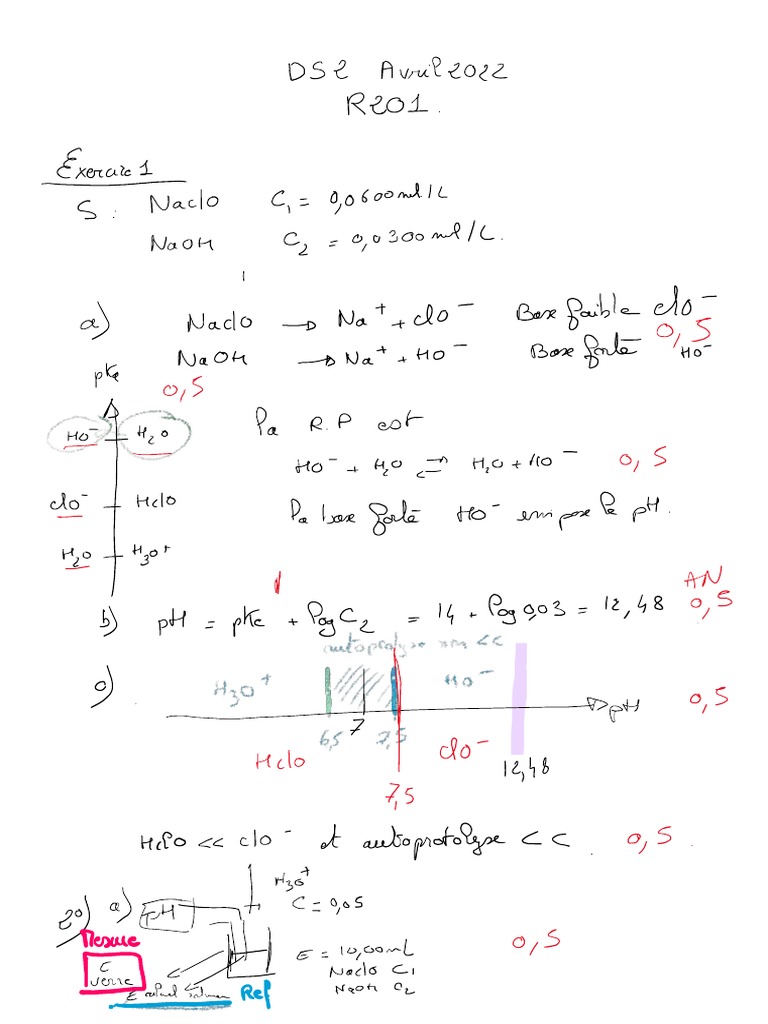 DS2 Avril 2022
R201.
Exercice 1
S : NaClO C₁ = 0,0600 mol/L
NaOH C₂ = 0,0300 mol/L.
a) NaClO → Na⁺ + ClO⁻ Base faible ClO⁻
0,5
NaOH → Na⁺ + HO⁻ Base forte HO⁻
pKa 0,5
HO⁻ H₂O La R.P est
HO⁻ + H₂O ⇌ H₂O + HO⁻ 0,5
ClO⁻ HClO La base forte HO⁻ impose le pH.
H₂O H₃O⁺
1 AN
b) pH = pKe + log C₂ = 14 + log 0,03 = 12,48 0,5
autoprotolyse <<
c) H₃O⁺ HO⁻ pH 0,5
6,5 7 7,5
HClO ClO⁻ 12,48
7,5
HClO << ClO⁻ et autoprotolyse << . 0,5
H₃O⁺
2°) a) pH C = 0,05
Mesure E = 10,00 mL 0,5
E verre NaClO C₁
NaOH C₂
Ref